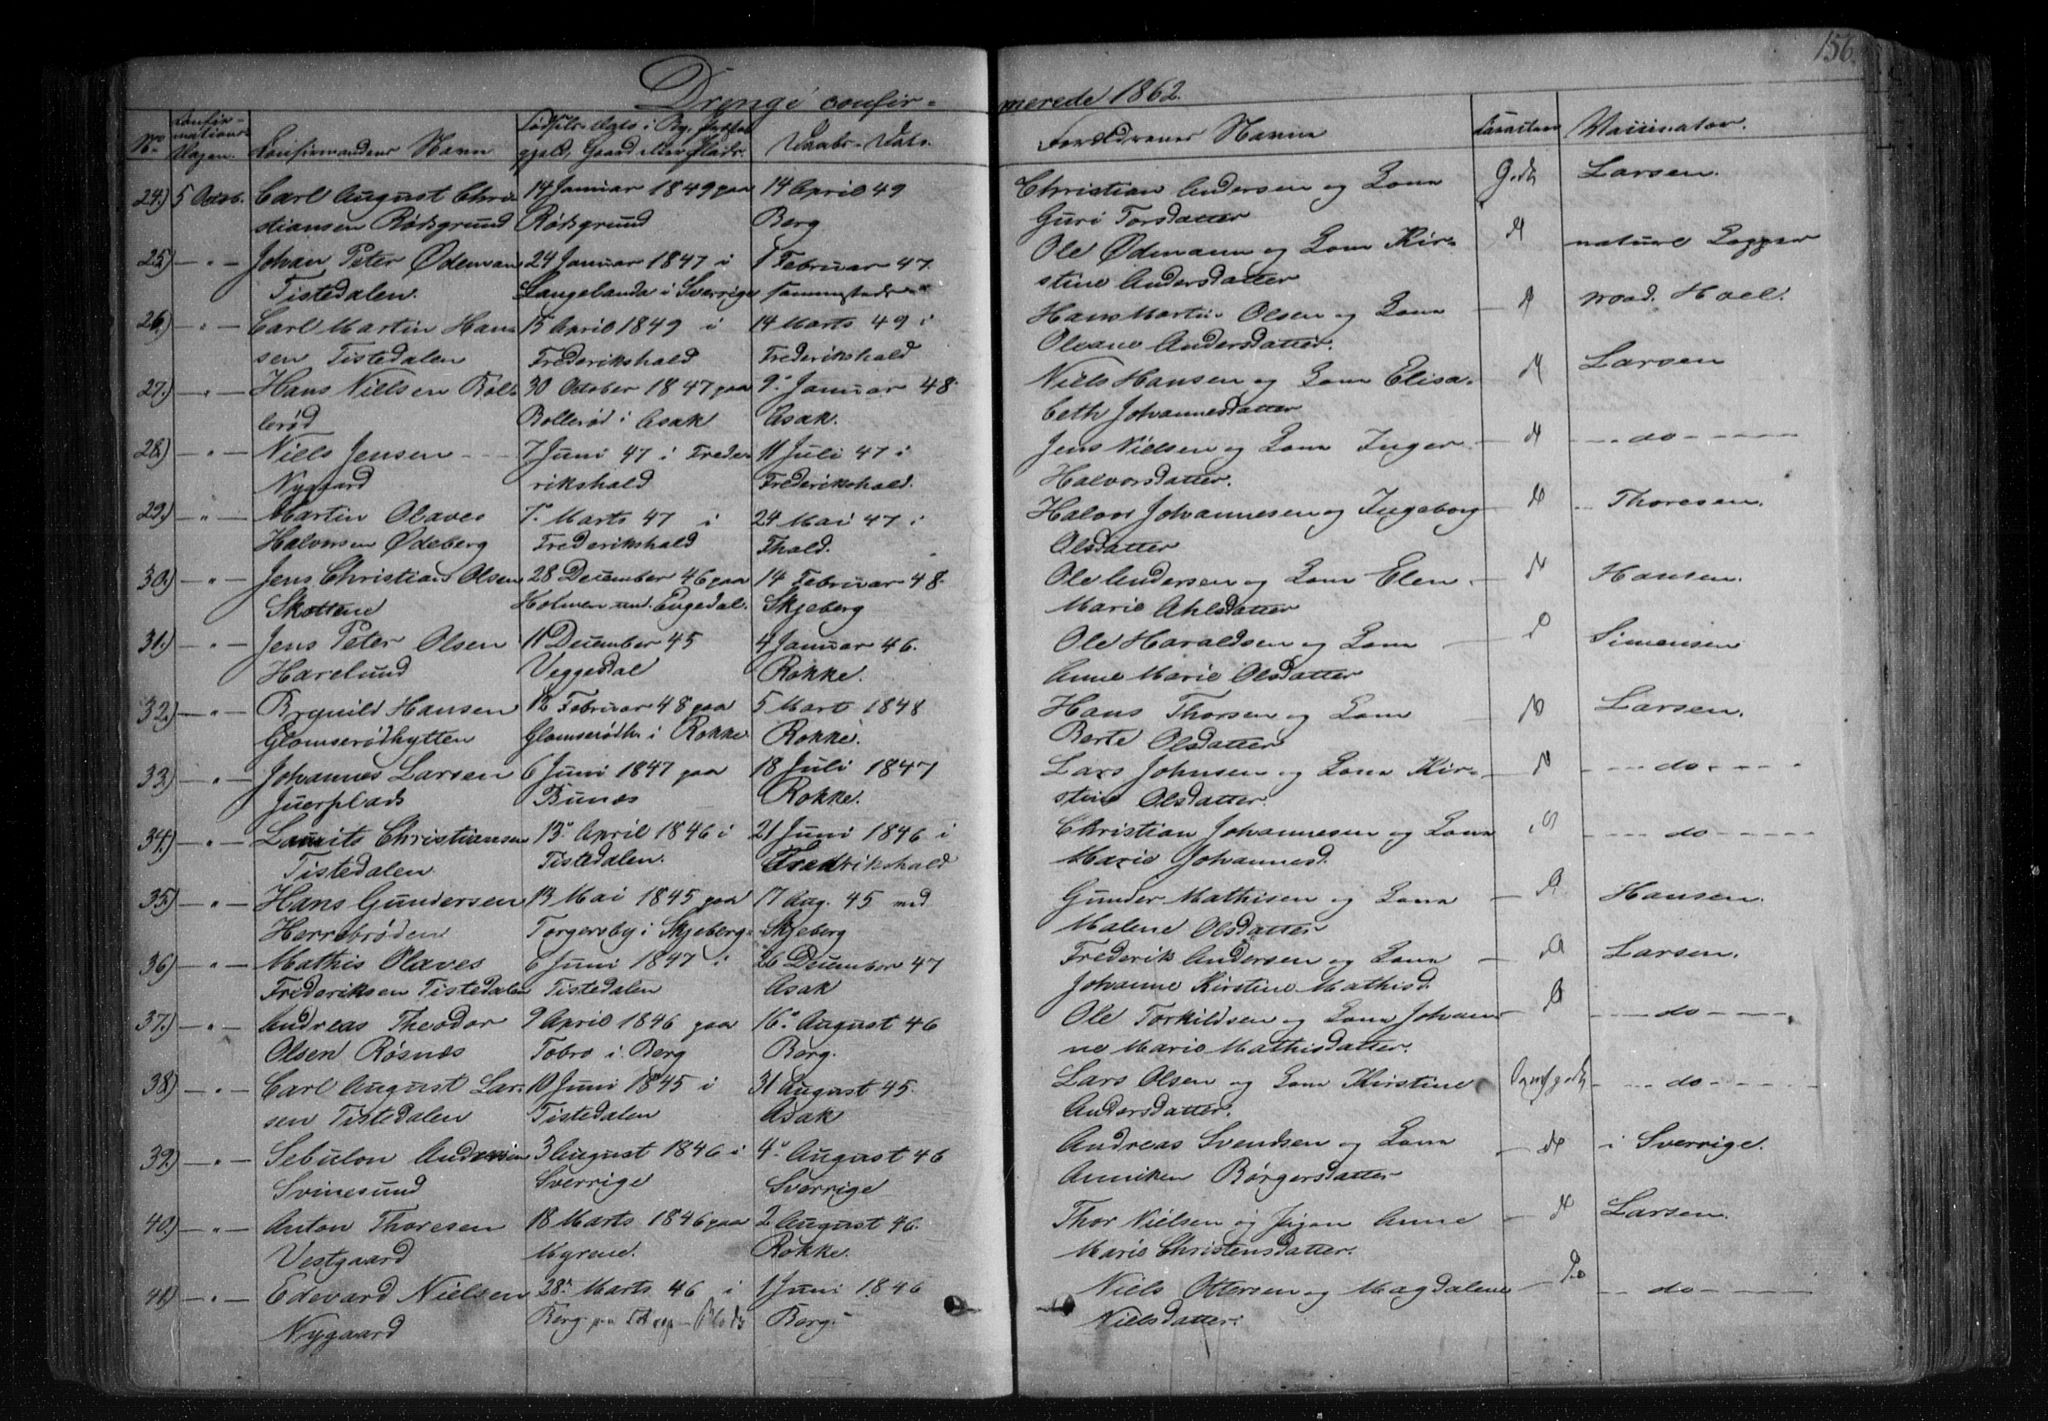 156.
Drenge confir- merede 1862.
No Confir-mations Dagen. Confirmandens Navn Fødsels-Dato i By, Præste gjeld, Gaard eller Plads. Daabs-Dato. Forældrenes Navne Vaccinator.
24.) 5 Octob. Carl August Chri 14 Januar 1849 paa 14 April 49 Christian Andersen og Kone Godt Larsen.
stiansen Rødsgrund Rødsgrund Berg Guri Torsdatter
25.) — " — Johan Peter Ødeman 24 Januar 1847 i 1 Februar 47. Ole Ødemann og Kone Kir-
Tistedalen. Langelanda i Sverrige sammesteds stine Andersdatter
26.) — " — Carl Martin Han 15 April 1849 i 14 Marts 49 i Hans Martin Olsen og Kone
sen Tistedalen Frederikshald Frederikshald Oleane Andersdatter.
27.) — " — Hans Nielsen Bol 30 October 1847 paa 9. Januar 48. Niels Hansen og Kone Elisa- Larsen
lerød Bollerød i Asak Asak. beth Johannesdatter
28.) — " — Niels Jensen 7 Juni 47 i Frede 11 Juli 47 i Jens Nielsen og Kone Inger — do —
Nygaard rikshald Frederikshald. Halvorsdatter.
29.) — " — Martin Olaves 7. Marts 47 i 24 Mai 47 i Halvor Johannesen og Ingeborg Thoresen.
Halvorsen Ødeberg Frederikshald Fhald. Olsdatter
30.) — " — Jens Christian Olsen 28 December 46 paa 14 Februar 48. Ole Andersen og Kone Elen Hansen.
Skottene Holmen und. Engedal. Skjeberg Marie Ahlsdatter
31.) — " — Jens Peter Olsen 11 December 45 4 Januar 46. Ole Haraldsen og Kone Simensen
Harelund Veggedal Rokke. Anne Marie Olsdatter
32.) — " — Brynild Hansen 12 Februar 48 paa 5 Mart 1848 Hans Thorsen og Kone Larsen.
Glomserødhytten Glomserødh. i Rokke Rokke. Berte Olsdatter
33.) — " — Johannes Larsen 6 Juni 1847 paa 18 Juli 1847 Lars Johnsen og Kone Kir- — do —
Juerplads Bunæs Rokke. stine Olsdatter.
34.) — " — Laurits Christiansen 13. April 1846 i 21 Juni 1846 i Christian Johannesen og Kone — do —
Tistedalen Tistedalen. Fredrikshald Marie Johannesd.
35.) — " — Hans Gundersen 13 Mai 1845 paa 17 Aug. 45 ved Gunder Mathisen og Kone Hansen.
Herrebrøden Torgersby i Skjeberg. Skjeberg Malene Olsdatter
36.) — " — Mathis Olaves 6 Juni 1847 i 26 December 47 Frederik Andersen og Kone Larsen.
Frederiksen Tistedalen Tistedalen Asak Johanne Kirstine Mathisd.
37.) — " — Andreas Theodor 9 April 1846 paa 16. August 46 Ole Torkildsen og Kone Johan — do —
Olsen Røsnæs Tobro i Berg Berg. ne Marie Mathisdatter.
38.) — " — Carl August Lar 10 Juni 1845 i 31 August 45. Lars Olsen og Kone Kirstine — do —
sen Tistedalen Tistedalen Asak Andersdatter.
39.) — " — Sebulon Andersen 3 August 1846 i 4. August 46 Andreas Svendsen og Kone i Sverrige.
Svinesund Sverrige Sverrige Anniken Børgersdatter
40.) — " — Anton Thoresen 18 Marts 1846 paa 2 August 46. Thor Nielsen og Pigen Anne Larsen.
Vestgaard Myrene. Rokke. Marie Christensdatter.
41.) — " — Edevard Nielsen 28. Marts 46 i 1 Juni 1846 Niels Ottersen og Magdalene — do —
Nygaard Berg Berg. Nielsdatter.